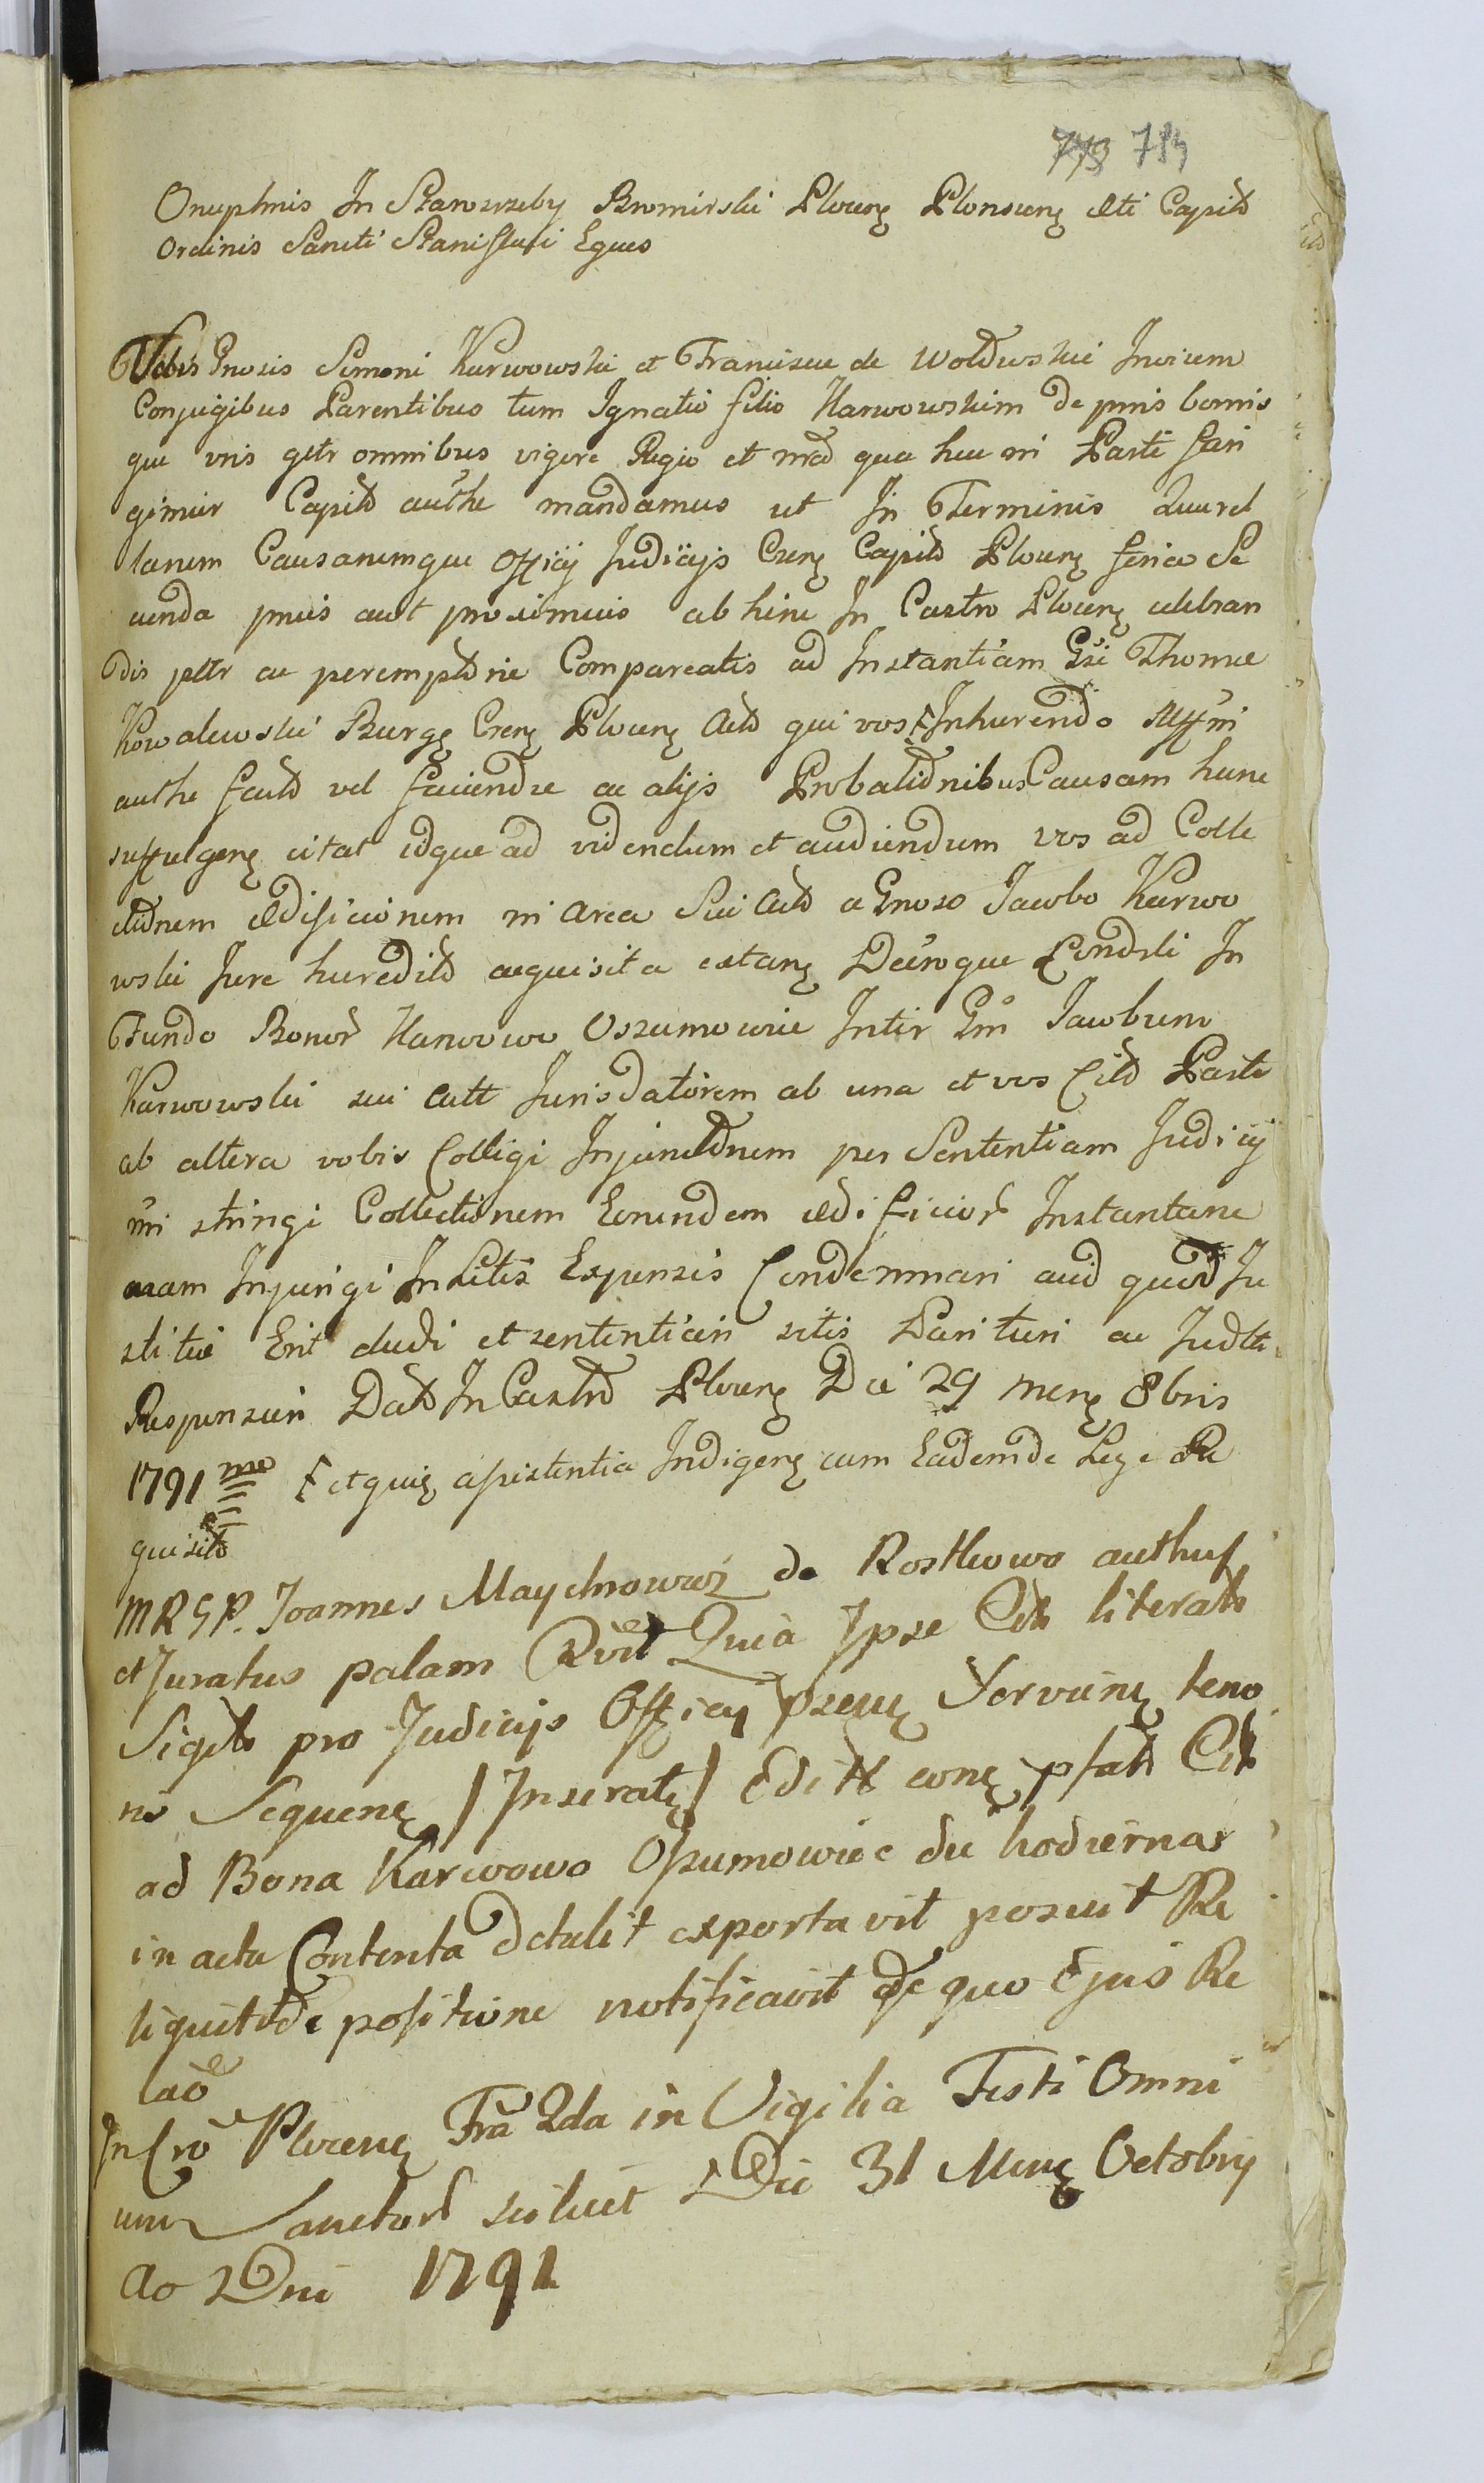 773 784
Onuphrius In Starozreby Bromirski Plocen Plonscen etc Capits
Ordinis Sancti Stanislai Eques
Vobis Gnosis Simoni Karwowski et Franciscae de Woldowskie Invicem
Conjugibus Parentibus tum Ignatio filio Karwowskim de pnis bonis
que vris gntr omnibus vigore Regio et mea qua hac in Parte fun
gimur Capits authe mandamus ut In Terminis Querel
larum Causarumque Officij Judicijs Crens Capits Plocens feria Se
cunda pnis aut proximius abhinc In Castro Plocens celebran
dis pltr ac peremptorie Compareatis ad Instantiam Gsi Thomae
Kowalewski Burgs Crens Plocens Acts qui vos Inhaerendo
authe facto vel faciendae ac alijs Probationibus Causam hanc
suffulgens citat idque ad videndum et audiendum vos ad Colle
ctionem aedificiorum in area Sui Acts a Gnoso Jacobo Karwo
wski Jure haeredits acquisita extans Decroque Condsli In
Fundo Bonor Karwowo Oszumowie Inter Gm Jacobum
Karwowski sui Actt Jurisdatorem ab una et vos Cits Parte
ab altera vobis Colligi Injunctionem per Sententiam Judicij
mi stringi Collectionem Eorundem aedificior Instantane
aram Injungi In Litis Expensis Condemnari aud quod Ju
stitiae Erit dudi et sententiari sitis Parituri ac Judlti
Responsuri Dats In Castro Plocens Die 29 mens 8bris
1791 mo et quis assistentia Indigens cum Eademde Lege Re
quisito
MRSP. Joannes Maychrowicz de Rostkowo authus
et Juratus palam Rvit Quia Ipse Cits literats
Sigilts pro Judicijs Officij psens Servuins teno
ris Sequens / Inserats / Editt cons psats Cits
ad Bona Karwowo Oszumowie die hodierna
in actu Contenta detulit exportavit posuit Re
liquit de positione notificavit de quo Ejus Re
lao
In Cro Plocens Fra 2da in Vigilia Festi Omni
um Sanctor scilicet Die 31 Mens Octobris
Ao Dni 1791